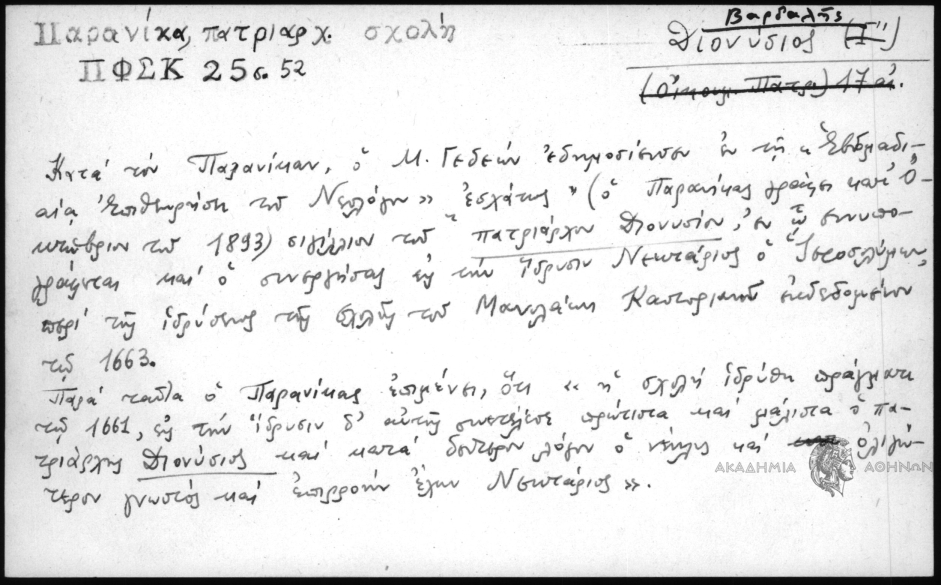 Παρανίκα, πατριαρχ. σχολή
ΠΦΣΚ 25 σ. 52
Βαρδαλῆς
Διονύσιος (Γ΄)
(Οἰκουμ. Πατρ.) 17 αἰ.
Κατά τόν Παρανίκαν, ὁ Μ. Γεδεών ἐδημοσίευσεν ἐν τῇ «Ἑβδομαδι-
αίᾳ Ἐπιθεωρήσει τοῦ Νεολόγου» "ἐσχάτως" (ὁ Παρανίκας γράφει κατά Ὀ-
κτώβριον τοῦ 1893) σιγίλλιον τοῦ πατριάρχου Διονυσίου, ἐν ᾧ συνυπο-
γράφεται καί ὁ συνεργήσας εἰς τήν ἵδρυσιν Νεκτάριος ὁ Ἱεροσολύμων,
περί τῆς ἱδρύσεως τῆς σχολῆς τοῦ Μανολάκη Καστοριανοῦ ἐκδεδομένον
τῷ 1663.
Παρά ταῦτα ὁ Παρανίκας ἐπιμένει, ὅτι «ἡ σχολή ἱδρύθη πράγματι
τῷ 1661, εἰς τήν ἵδρυσιν δ' αὐτῆς συνετέλεσε πρώτιστα καί μάλιστα ὁ πα-
τριάρχης Διονύσιος καί κατά δεύτερον λόγον ὁ νέηλυς καί ὀλιγώ-
τερον γνωστός καί ἐπιρροήν ἔχων Νεκτάριος».
ΑΚΑΔΗΜΙΑ ΑΘΗΝΩΝ